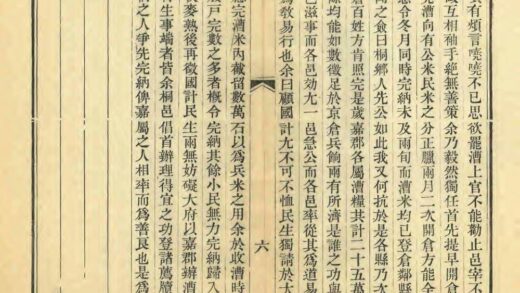 有煩言嘵嘵不已思欲罷漕上官不能勸止邑宰不
互相袖手絕無善策余乃毅然獨任首先提早開倉
漕向有公米民米之分正臘兩月二次開倉方能全
急令冬月同時完納未及兩旬而漕米均已登倉鄰縣
問之僉曰桐鄉人先公如此我又何抗於是各縣乃次
百姓方肯照完是歲嘉郡各屬漕糧其計二十五萬
餘均能如數徵足於京倉兵餉兩有所濟是誰之功與
已滋事而各邑効尤一邑急公而各邑率從其為道易
為敎易行也余曰顧國計尤不可不恤民生獨請於大
六
完漕米內截留數萬石以為兵米之用余於收漕時
戶完數之多者槪令完納其餘小民無力完納歸入
麥熟後再徵國計民生兩無妨礙大府以嘉郡辦漕
生事端者皆余桐邑倡首辦理得宜之功登諸薦牘
之人爭先完納俾嘉屬之人相率而為善良也是為